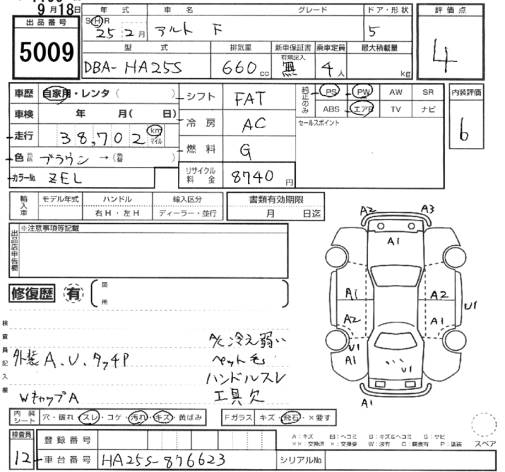 9月18日
出品番号 5009
年式 車名 グレード ドア・形状
S H R 25年2月 アルト F 5
型式 排気量 新車保証書 乗車定員 最大積載量
有無記入
DBA-HA25S 660cc 無 4人 kg
評価点
4
車歴 自家用・レンタ( )
車検 年 月( 日)
走行 38,702 km マイル
色 ブラウン→( )
カラーNo. ZEL
シフト FAT
冷房 AC
燃料 G
リサイクル料金 8740円
純正のみ PS PW AW SR
ABS エアB TV ナビ
セールスポイント
内装評価
6
輸入車 モデル年式 ハンドル 輸入区分
右H・左H ディーラー・並行
書類有効期限
月 日迄
出品店申告欄 ※注意事項等記載
修復歴 有
箇所
検査員記入欄
A/C冷え弱い
外装A.U.タッチP ペット毛
ハンドルスレ
WキャップA 工具欠
A2 A3
A1
A1 A2 U1
A2 A1
A1 U1
A1
内装シート 穴・破れ・スレ・コゲ・汚れ・キズ・黄ばみ
Fガラス キズ・飛石・X要す
スペア
検査員 12
登録番号
車台番号 HA25S-876623
シリアルNo.
A:キズ